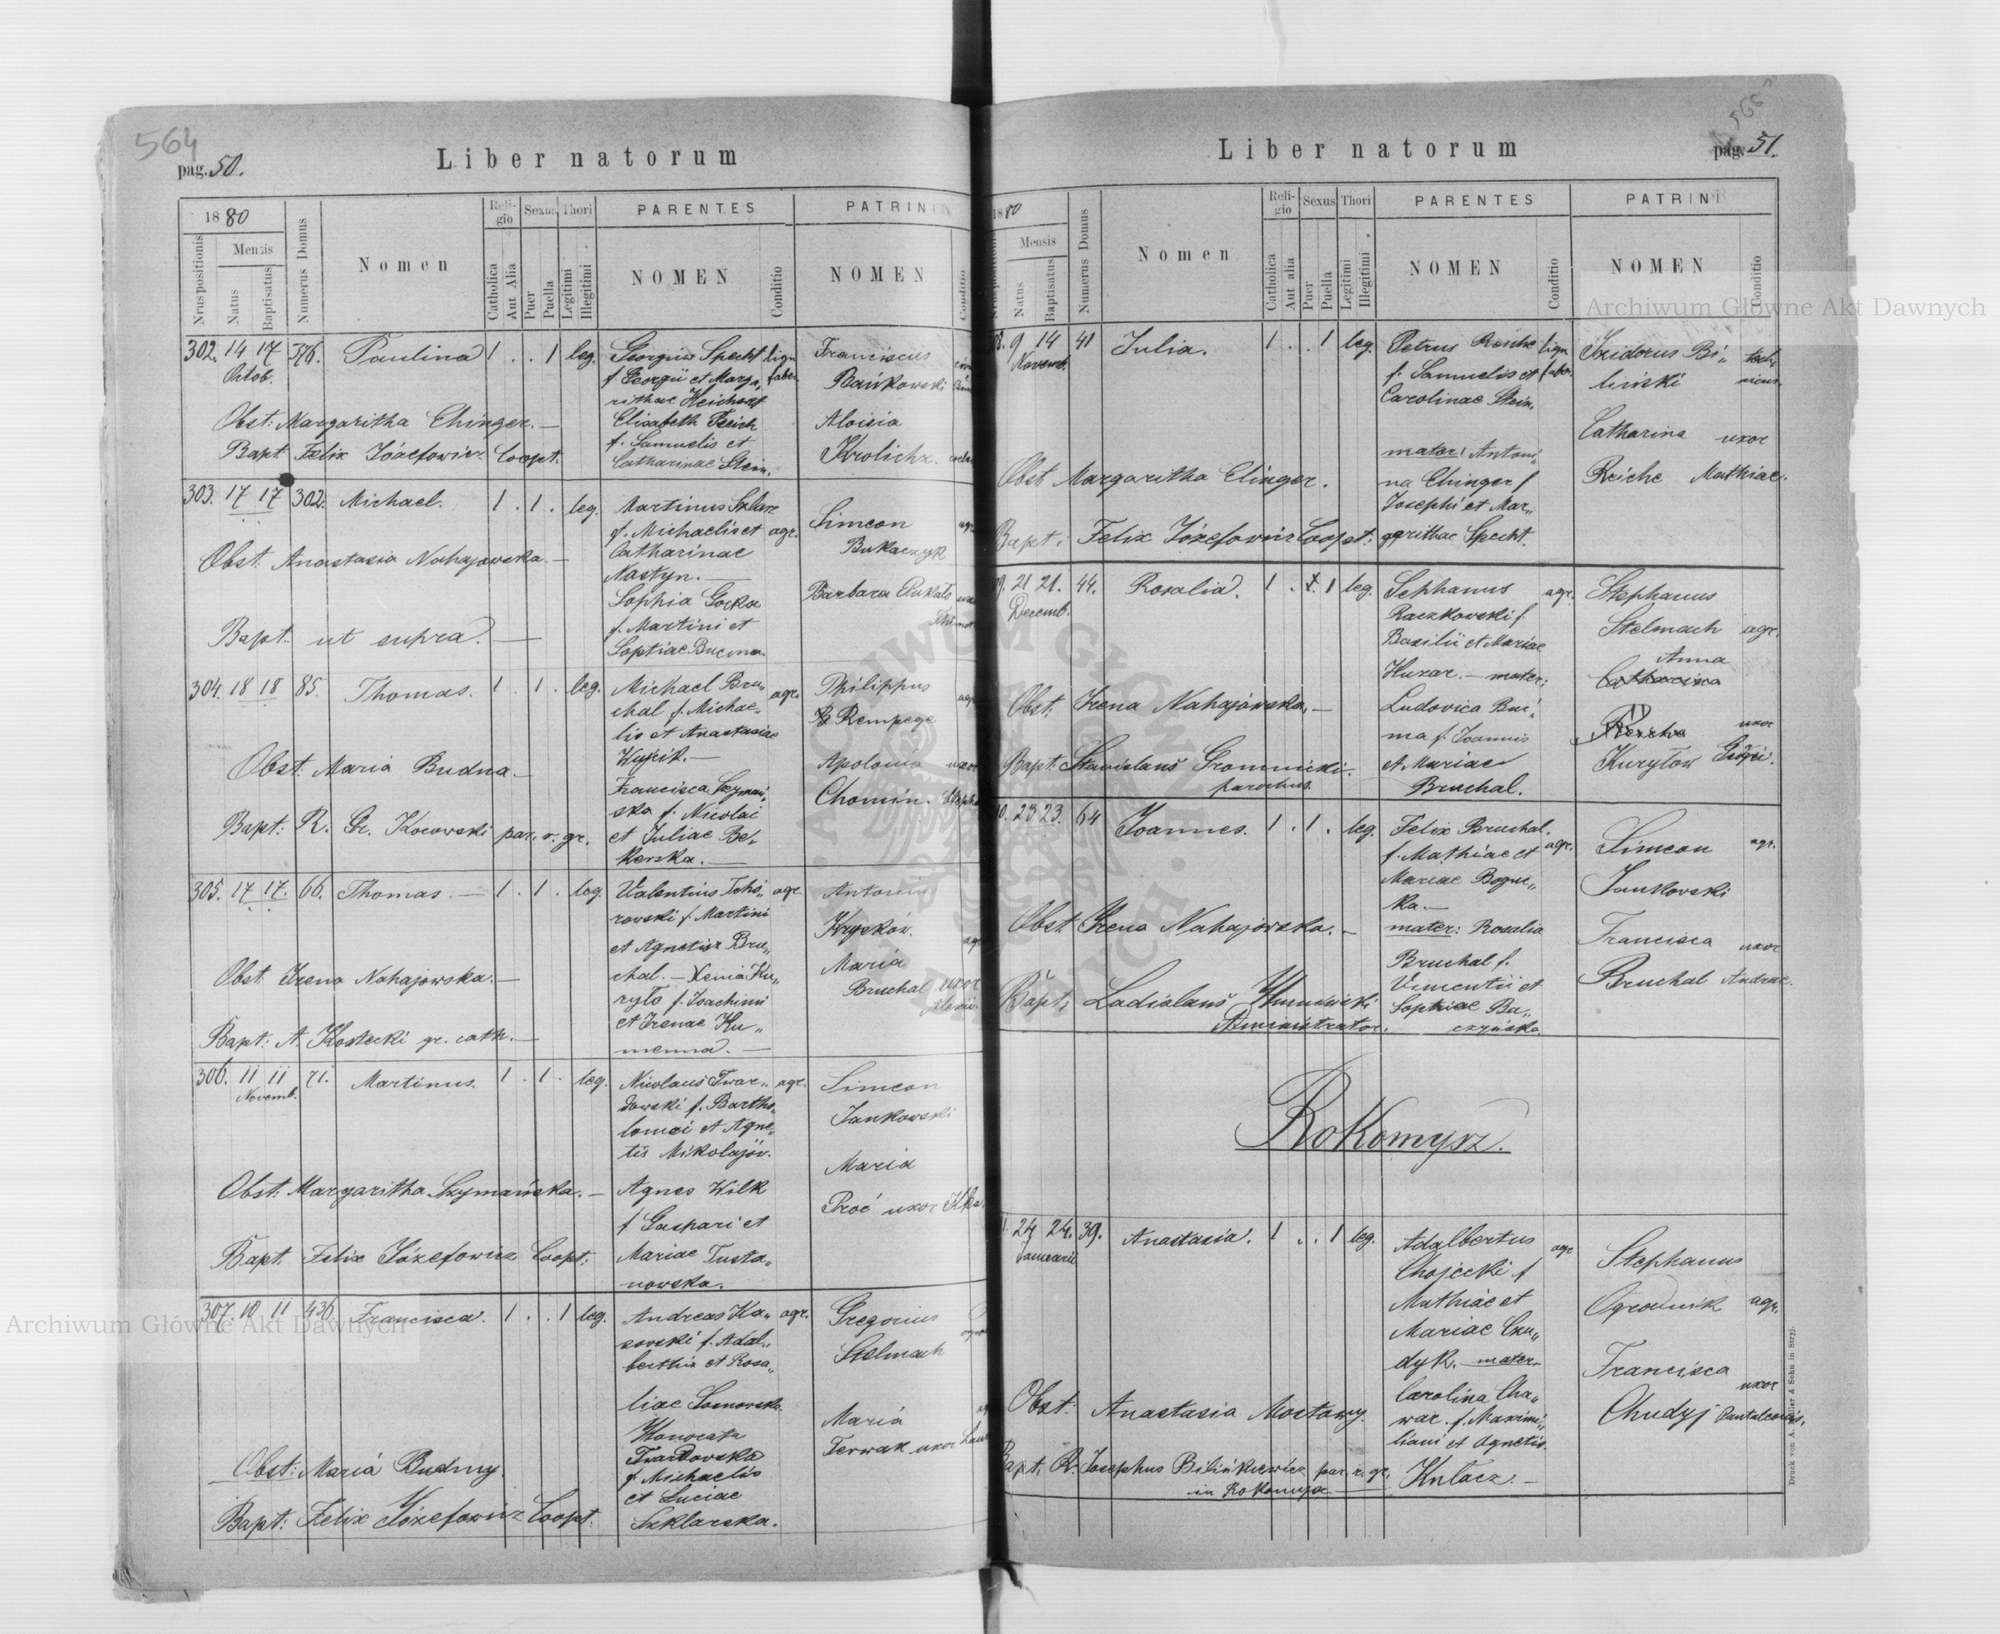 564
pag. 50.
Liber natorum
1880
Nrus positionis
Mensis
Natus
Baptisatus
Numerus Domus
Nomen
Religio
Catholica
Aut Alia
Sexus
Puer
Puella
Thori
Legitimi
Illegitimi
PARENTES
NOMEN
Conditio
PATRINI
NOMEN
Conditio
302. 14 17 376. Paulina 1 . . 1 leg.
Octob.
Georgius Specht
f. Georgii et Marga,,
rithae Reichert
Elisabeth Reich
f. Samuelis et
Catharinae Stein.
lign.
faber
Franciscus
Bańkowski
Aloisia
Krolich
Obst: Margaritha Ehinger. —
Bapt. Felix Józefowicz Coopt.
303. 17 17 302. Michael. 1 . 1 . leg.
Martinus Szklarz
f. Michaelis et
Catharinae
Nastyn. —
Sophia Gorka
f. Martini et
Sophiae Bucma.
agr.
Simeon
Bukaczyk
Barbara Pukało
Obst. Anastasia Nahajowska. —
Bapt. ut supra. —
304. 18 18 85. Thomas. 1 . 1 . leg.
Michael Bru,,
chal f. Michae,,
lis et Anastasiae
Wujcik. —
Francisca Szymań,,
ska f. Nicolai
et Juliae Bel,,
kerska. —
agr.
Philippus
Rempega
Apolonia uxor
Chomin.
Obst: Maria Budna —
Bapt: R. Gr. Kocowski par. r. gr.
305. 17 17. 66. Thomas. — 1 . 1 . leg.
Valentius Tcho,,
rowski f. Martini
et Agnetis Bru,,
chal. — Xenia Ku,,
ryło f. Joachimi
et Irenae Hu,,
menna. —
agr.
Antonius
Kryskow.
Maria
Bruchal uxor
Obst. Irena Nahajowska. —
Bapt: A. Kostecki gr. cath. —
306. 11 11 71. Martinus. 1 . 1 . leg.
Novemb.
Nicolaus Twar,,
dowski f. Bartho,,
lomei et Agne,,
tis Mikolajów.
Agnes Wilk
f Gaspari et
Mariae Tusta,,
nowska.
agr.
Simeon
Jankowski
Maria
Proć uxor
Obst: Margaritha Szymańska. —
Bapt. Felix Józefowicz Coopt.
307. 10 11 436. Francisca. 1 . . 1 leg.
Andreas Ko,,
sowski f. Adal,,
berthi et Rosa,,
liae Somorska.
Honorata
Twardowska
f Michaelis
et Luciae
Szklarska.
agr.
Gregorius
Stelmach
Maria
Terwak uxor
Obst: Maria Budny
Bapt: Felix Józefowicz Coopt.
565
pag. 51.
Liber natorum
1880
Mensis
Natus
Baptisatus
Numerus Domus
Nomen
Religio
Catholica
Aut alia
Sexus
Puer
Puella
Thori
Legitimi
Illegitimi
PARENTES
NOMEN
Conditio
PATRINI
NOMEN
Conditio
9 14 41 Julia. 1 . . 1 leg.
Novemb.
Petrus Reiche
f. Samuelis et
Carolinae Stein.
mater: Antoni,,
na Ehinger f
Josephi et Mar,,
garithae Specht.
lign.
faber.
Isidorus Bi,,
liński
Catharina uxor
Reiche Mathiae.
Obst Margaritha Ehinger.
Bapt: Felix Józefowicz Coopt:
21 21. 44. Rosalia. 1 . 1 leg.
Decemb.
Sephanus
Raczkowski f
Basilii et Mariae
Huzar. — mater:
Ludovica Buc,,
ma f. Joannis
et Mariae
Bruchal.
agr.
Stephanus
Stelmach agr.
Anna
Catharina
uxor
Kuryłow Grögii.
Obst. Irena Nahajowska. —
Bapt: Stanislaus Gromnicki.
parochus.
23 23. 64 Joannes. 1 . 1 . leg.
Felix Bruchal.
f. Mathiae et
Mariae Bogue,,
ka. —
mater: Rosalia
Bruchal f.
Vincentii et
Sophiae Ba,,
czyńska
agr.
Simeon agr.
Jankowski
Francisca uxor
Bruchal Andreae.
Obst Irena Nahajowska. —
Bapt: Ladislaus
Administrator.
Rokomysz.
24 24. 39. Anastasia. 1 . . 1 leg.
Januarii
Adalbertus
Chojecki f
Mathiae et
Mariae Chu,,
dyk. — mater
Carolina Cha,,
war. f. Maximi,,
liani et Agnetis.
Kulacz. —
agr
Stephanus
Ogrodnik agr.
Francisca
uxor
Chudyj Pantaleonis.
Obst: Anastasia Mostowy.
Bapt. R. Josephus Bilińkiewicz par. r. gr.
in Rokomysz
Druck von A. Müller & Sohn in Stryj.
Archiwum Główne Akt Dawnych
Archiwum Główne Akt Dawnych